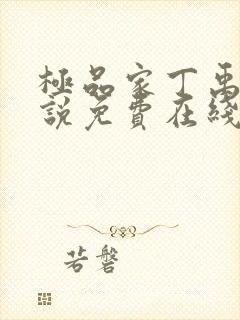 極品家丁禹
說免費在綫
若磐